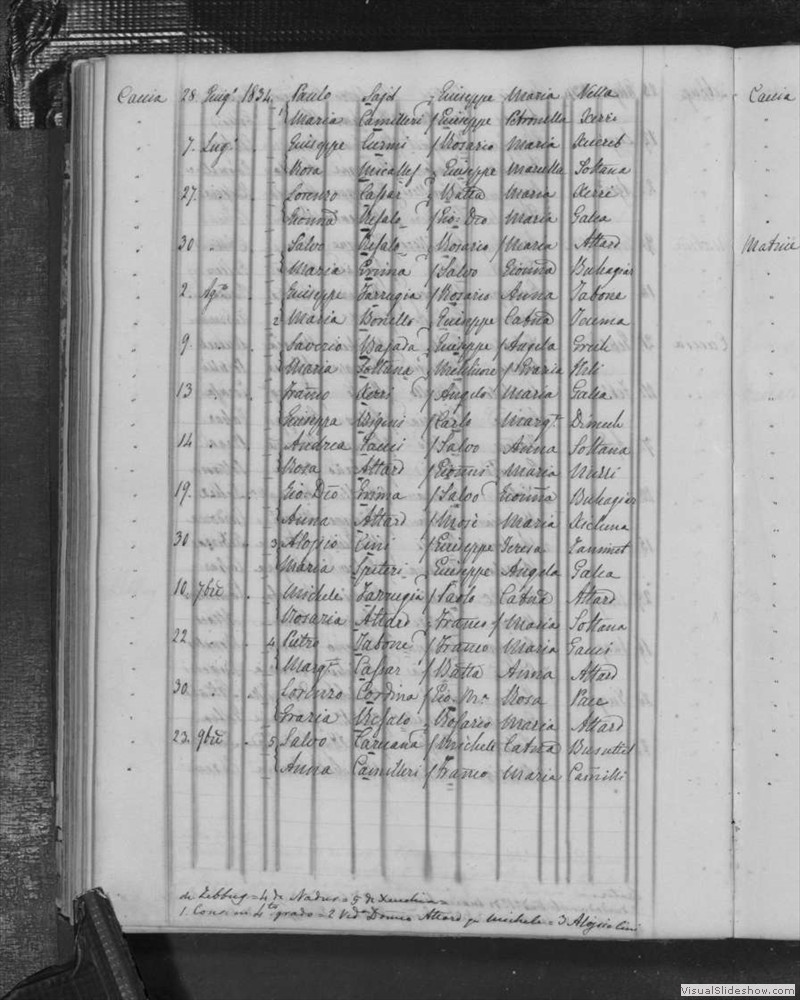 Caccia 28 Giug.o 1834. Paulo Said Giuseppe Maria Vella Caccia
1 Maria Camilleri Giuseppe Petronella Xerri
7. Lug.o Giuseppe Curmi Rosario Maria Xuereb
Rosa Micallef Giuseppe Mariella Soltana
27. Lorenzo Cassar Batta Maria Xerri
Gionna Refalo Gio: Dio Maria Galea
30 Salvo Refalo Rosario Maria Attard Matrice
Maria Grima Salvo Gionna Buhagiar
2. Ag.o Giuseppe Farrugia Rosario Anna Tabone
2 Maria Bonello Giuseppe Catna Teuma
9 Saverio Bajada Giuseppe Angela Grech
Maria Soltana Melchiore Grazia
13 Franco Xerri Angelo Maria Galea
Giuseppa Carlo Marg.ta Dimech
14 Andrea Salvo Anna Soltana
Rosa Attard Gionni Maria
19. Gio: Dio Grima Salvo Gionna Buhagiar
Anna Attard Mosè Maria Xicluna
30 3 Aloysio Cini Giuseppe Teresa Tanmut
Maria Spiteri Giuseppe Angela Galea
10. 7bre Michele Farrugia Paolo Catna Attard
Rosaria Attard Franco Maria Soltana
22 4 Pietro Tabone Franco Maria Gauci
Marg.ta Cassar Batta Anna Attard
30. Lorenzo Cordina Gio. Ma. Rosa Pace
Grazia Refalo Rosario Maria Attard
23. 9bre 5 Salvo Caruana Michele Catna Busuttil
Anna Camilleri Franco Maria Camilli
de Zebbug = 4 de Nadur = 5 de Xeuchia =
1. Cons. in 4to grado = 2 Vid.a Domco Attard q.m Michele = 3 Aloysio Cini
VisualSlideshow.com